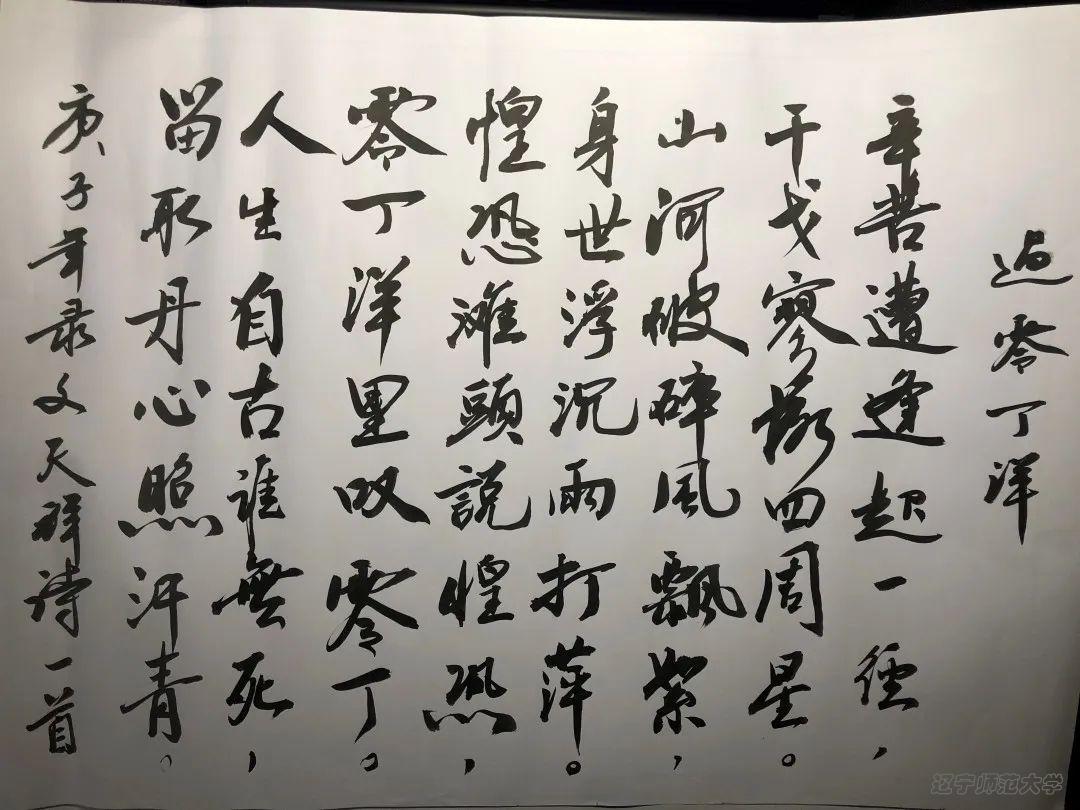 过零丁洋
辛苦遭逢起一径，
干戈寥落四周星。
山河破碎风飘絮，
身世浮沉雨打萍。
惶恐滩頭説惶恐，
零丁洋里叹零丁。
人生自古谁無死，
留取丹心照汗青。
庚子年录文天祥诗一首
辽宁师范大学